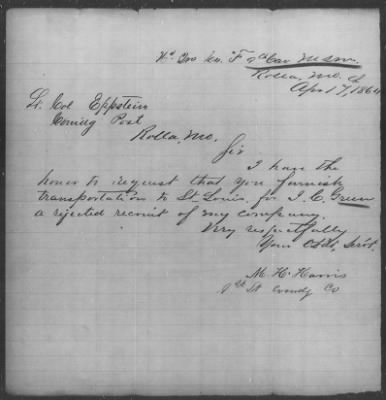 Hd Qrs Co. "F" 9th Cav M.S.M.
Rolla, Mo.
Apr 17, 1864
Lt. Col Eppstein
Comdg Post
Rolla, Mo.
Sir
I have the
honor to request that you furnish
transportation to St. Louis, for J. C. Green
a rejected recruit of my company.
Very respectfully
Your Obt. Servt.
M. H. Harris
1st Lt Comdg Co